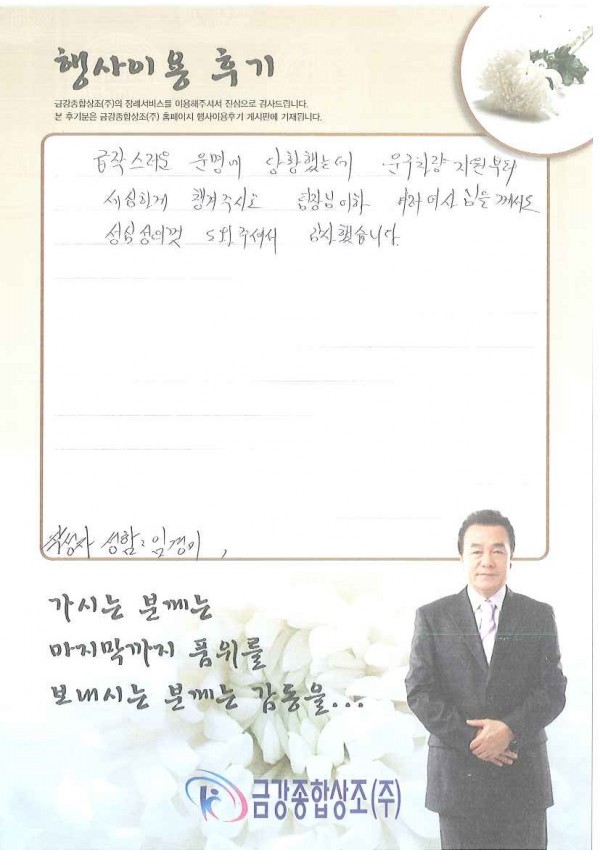 행사이용 후기
금강종합상조(주)의 장례서비스를 이용해주셔서 진심으로 감사드립니다.
본 후기문은 금강종합상조(주) 홈페이지 행사이용후기 게시판에 기재됩니다.
급작스러운 운명에 당황했는데 운구차량 지원부터
세심하게 챙겨주시고 팀장님이하 여러 여사님들께서도
성심성의껏 도와주셔서 감사했습니다.
작성자 성함: 임경이,
가시는 분께는
마지막까지 품위를
보내시는 분께는 감동을...
금강종합상조(주)